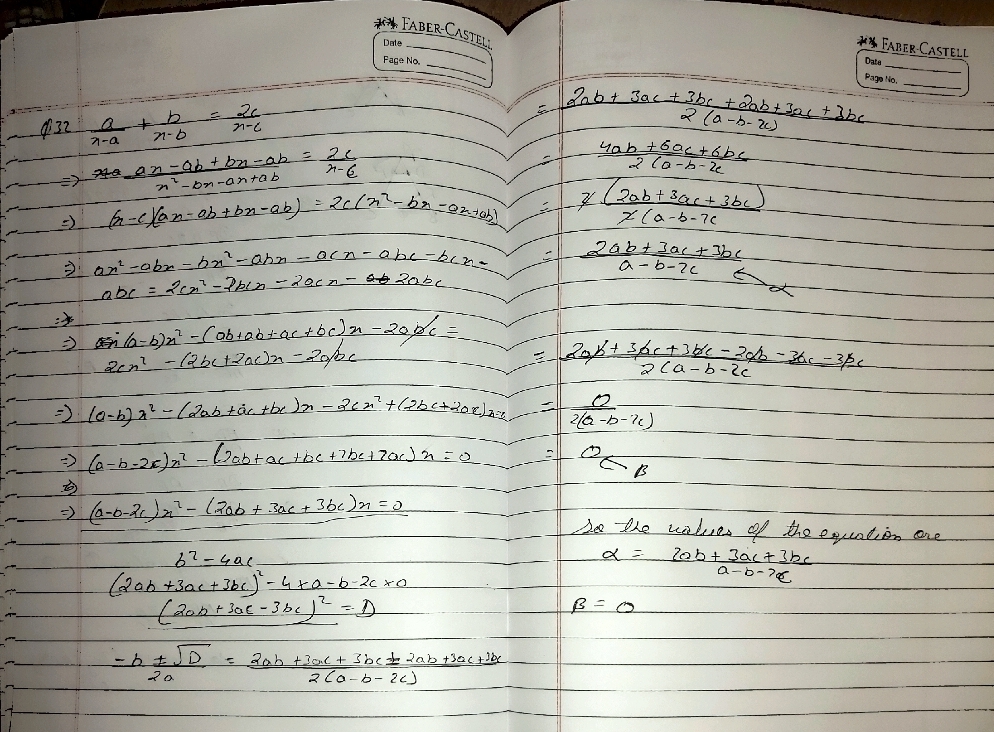 FABER-CASTELL
Date
Page No.
Q32 a/(x-a) + b/(x-b) = 2c/(x-c)
=> (ax-ab+bx-ab)/(x²-bx-ax+ab) = 2c/(x-c)
=> (x-c)(ax-ab+bx-ab) = 2c(x²-bx-ax+ab)
=> ax²-abx-bx²-abx-acx-abc-bcx-
abc = 2cx²-2bcx-2acx-2abc
=> (a-b)x²-(ab+ab+ac+bc)x-2abc =
2cx²-(2bc+2ac)x-2abc
=> (a-b)x²-(2ab+ac+bc)x-2cx²+(2bc+2ac)x=0
=> (a-b-2c)x²-(2ab+ac+bc+2bc+2ac)x=0
=> (a-b-2c)x²-(2ab+3ac+3bc)x=0
b²-4ac
(2ab+3ac+3bc)²-4×a-b-2c×0
(2ab+3ac-3bc)²=D
(-b±√D)/2a = (2ab+3ac+3bc±2ab+3ac+3bc)/2(a-b-2c)
FABER-CASTELL
Date
Page No.
= (2ab+3ac+3bc+2ab+3ac+3bc)/2(a-b-2c)
= (4ab+6ac+6bc)/2(a-b-2c
= 2(2ab+3ac+3bc)/2(a-b-2c
= (2ab+3ac+3bc)/(a-b-2c) ← α
= (2ab+3bc+3bc-2ab-3bc-3bc)/2(a-b-2c
= 0/2(a-b-2c)
= 0 ← β
so the values of the equation are
α = (2ab+3ac+3bc)/(a-b-2c)
β = 0